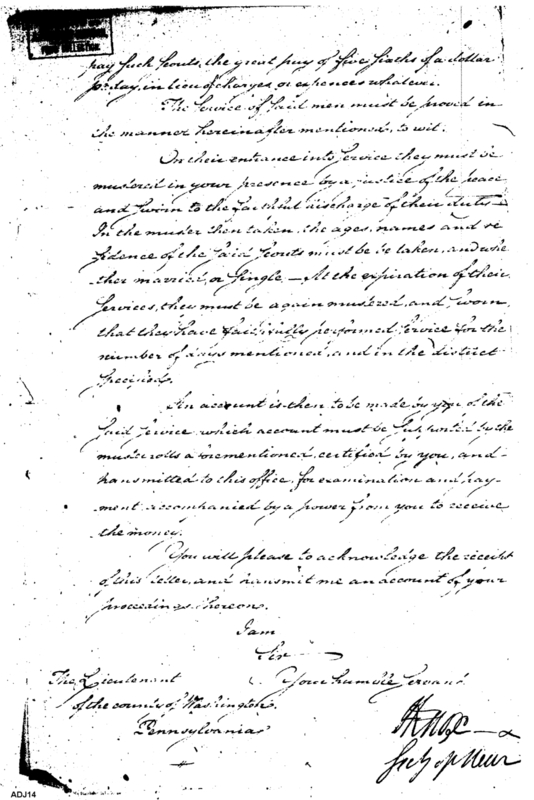 pay such scouts, the great pay of five sixths of a dollar
pr day, in lieu of charges or expences whatever.
The service of said men must be proved in
the manner hereinafter mentioned, to wit.
On their entrance into service they must be
mustered in your presence by a justice of the peace
and sworn to the faithful discharge of their duties —
In the muster then taken, the ages, names and re
sidence of the said scouts must be taken, and whe
ther married, or single, — At the expiration of their
services, they must be again mustered, and sworn,
that they have faithfully performed service for the
number of days mentioned, and in the district
specified.
An account is then to be made by you of the
said service, which account must be supported by the
muster rolls aforementioned, certified by you, and
transmitted to this office, for examination and pay-
ment, accompanied by a power from you to receive
the money.
You will please to acknowledge the receipt
of this letter, and transmit me an account of your
proceedings thereon.
I am
Sir
Your humble Servant
The Lieutenant
of the county of Washington,
Pennsylvania
HKnox
Secy of War
ADJ14